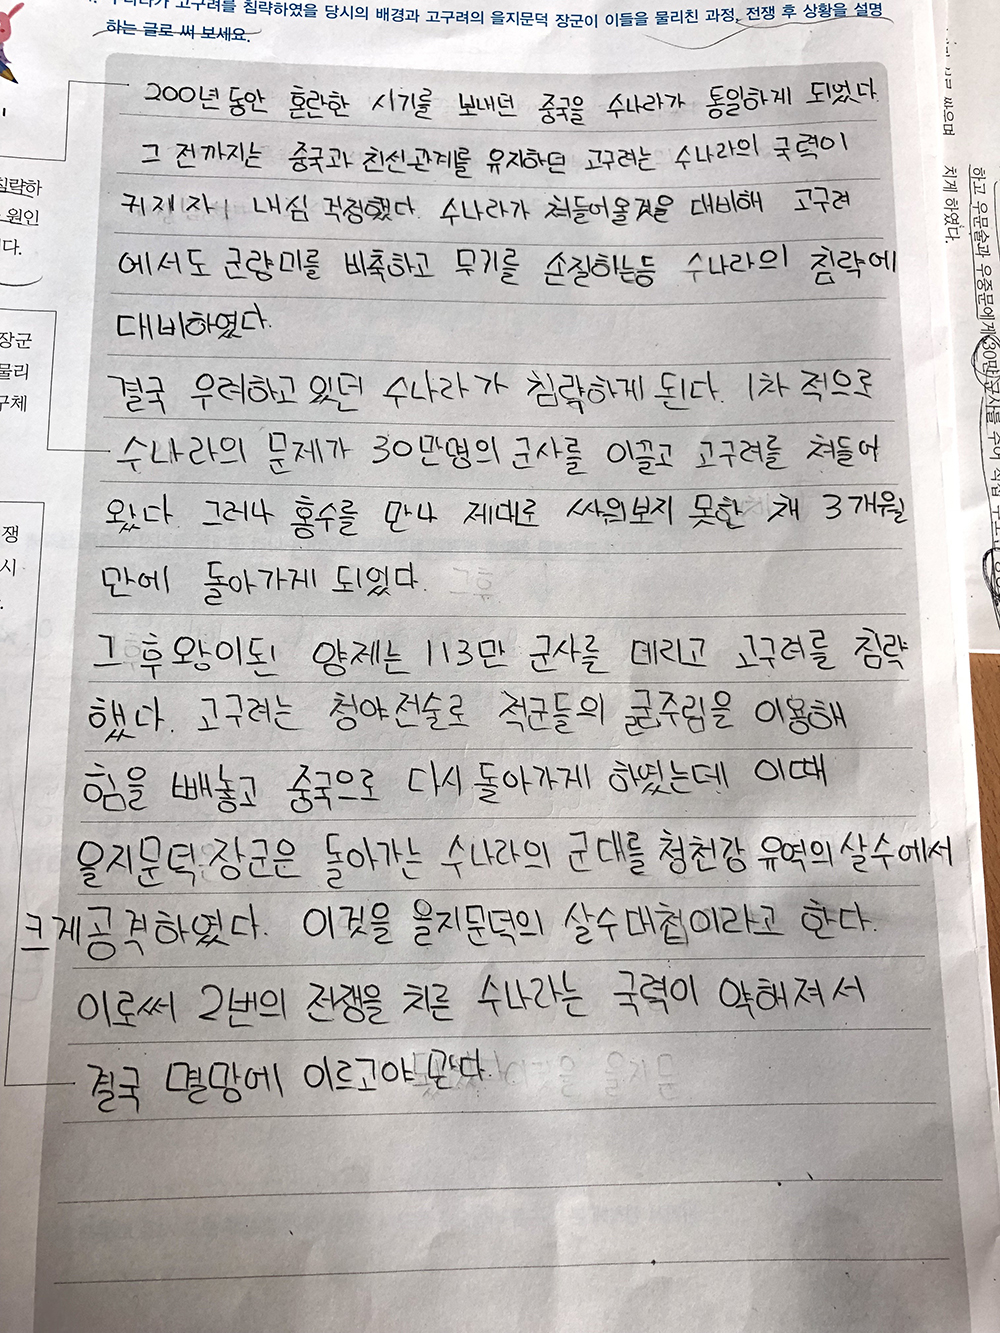 고구려를 침략하였을 당시의 배경과 고구려의 을지문덕 장군이 이들을 물리친 과정, 전쟁 후 상황을 설명
하는 글로 써 보세요.
200년 동안 혼란한 시기를 보내던 중국을 수나라가 통일하게 되었다.
그 전까지는 중국과 친선관계를 유지하던 고구려는 수나라의 국력이
커지자 내심 걱정했다. 수나라가 쳐들어올것을 대비해 고구려
에서도 군량미를 비축하고 무기를 손질하는등 수나라의 침략에
대비하였다.
결국 우려하고 있던 수나라가 침략하게 된다. 1차 적으로
수나라의 문제가 30만명의 군사를 이끌고 고구려를 쳐들어
왔다. 그러나 홍수를 만나 제대로 싸워보지 못한 채 3개월
만에 돌아가게 되었다. 그후
그 후 왕이된 양제는 113만 군사를 데리고 고구려를 침략
했다. 고구려는 청야전술로 적군들의 굶주림을 이용해
힘을 빼놓고 중국으로 다시 돌아가게 하였는데 이때
을지문덕 장군은 돌아가는 수나라의 군대를 청천강 유역의 살수에서
크게공격하였다. 이것을 을지문덕의 살수대첩이라고 한다.
이로써 2번의 전쟁을 치른 수나라는 국력이 약해져서
결국 멸망에 이르고야 만다.
침략하
원인
다.
장군
물리
구체
쟁
시
싸으며
치게 하였다.
하고 우문술과 우중문에게 30만 군사를 주어